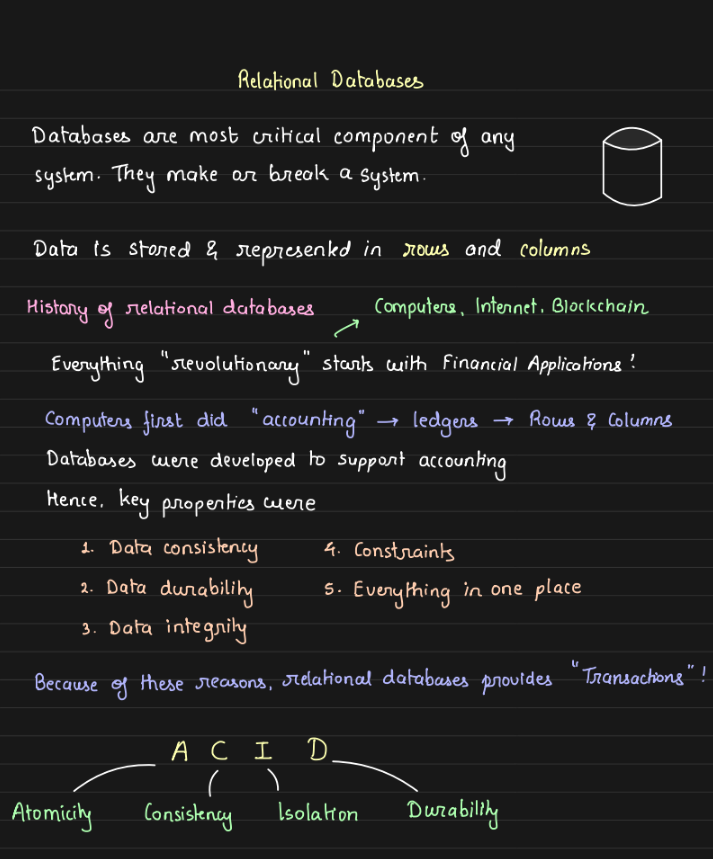 Relational Databases
Databases are most critical component of any
system. They make or break a system.
Data is stored & represented in rows and columns
History of relational databases
Computers, Internet, Blockchain
Everything "revolutionary" starts with Financial Applications!
Computers first did "accounting" → ledgers → Rows & Columns
Databases were developed to support accounting
Hence, key properties were
1. Data consistency 4. Constraints
2. Data durability 5. Everything in one place
3. Data integrity
Because of these reasons, relational databases provides "Transactions"!
A C I D
Atomicity Consistency Isolation Durability